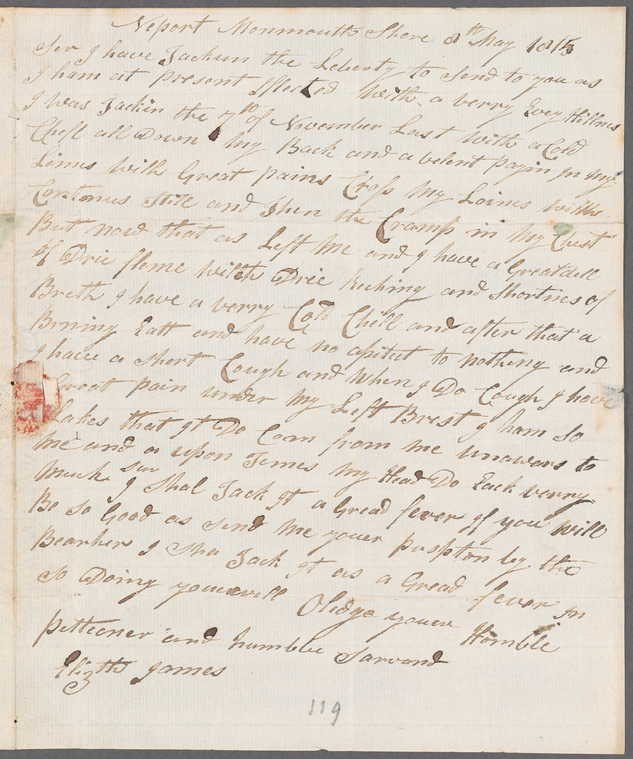 Neport Monmouth Shore 8th May 1815
Ser I have Jackun the Leberty to Send to you as
I ham at present Flected with a verry Evey Hillnes
I was Jackin the 7th of November Last with a Cold
Chill all Down My Back and a velent payin in My
Limes with Great pains Cross My Loines withs
Contenus Stile and Then the Cramp in My Chest
But now that as Left Me and I have a Great dell
of Drie fleme with Drie Reching and Shortnes of
Breth I have a verry Cold Chill and after that a
Brining Eatt and have no apitiet to nothing and
I have a Short Cough and When I Do Cough I have
Great pain under My Left Brest I ham So
Lakes that it Do Com from me unawars to
me and a upon Temes My Head Do Eack verry
Much Sur I Shal Jack it a Gread fever if you will
Be So Good as Send Me youer pusption by the
Bearher I Sha Jack it as a Gread fever in
So Doing youe will Oblidge youer Homble
pettecner and humble Sarvand
Elizth James
119